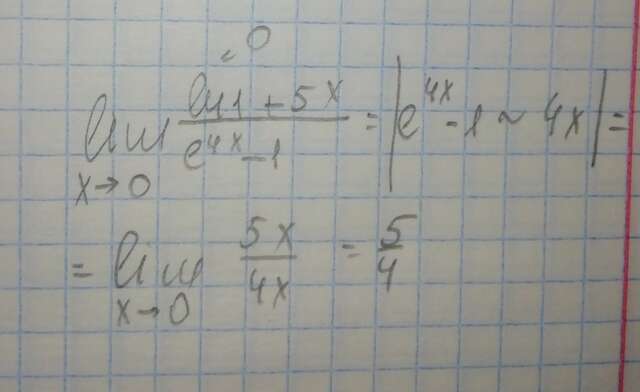 0
lim x→0 (ln 1 + 5x)/(e^4x - 1) = |e^4x - 1 ~ 4x| =
= lim x→0 5x/4x = 5/4